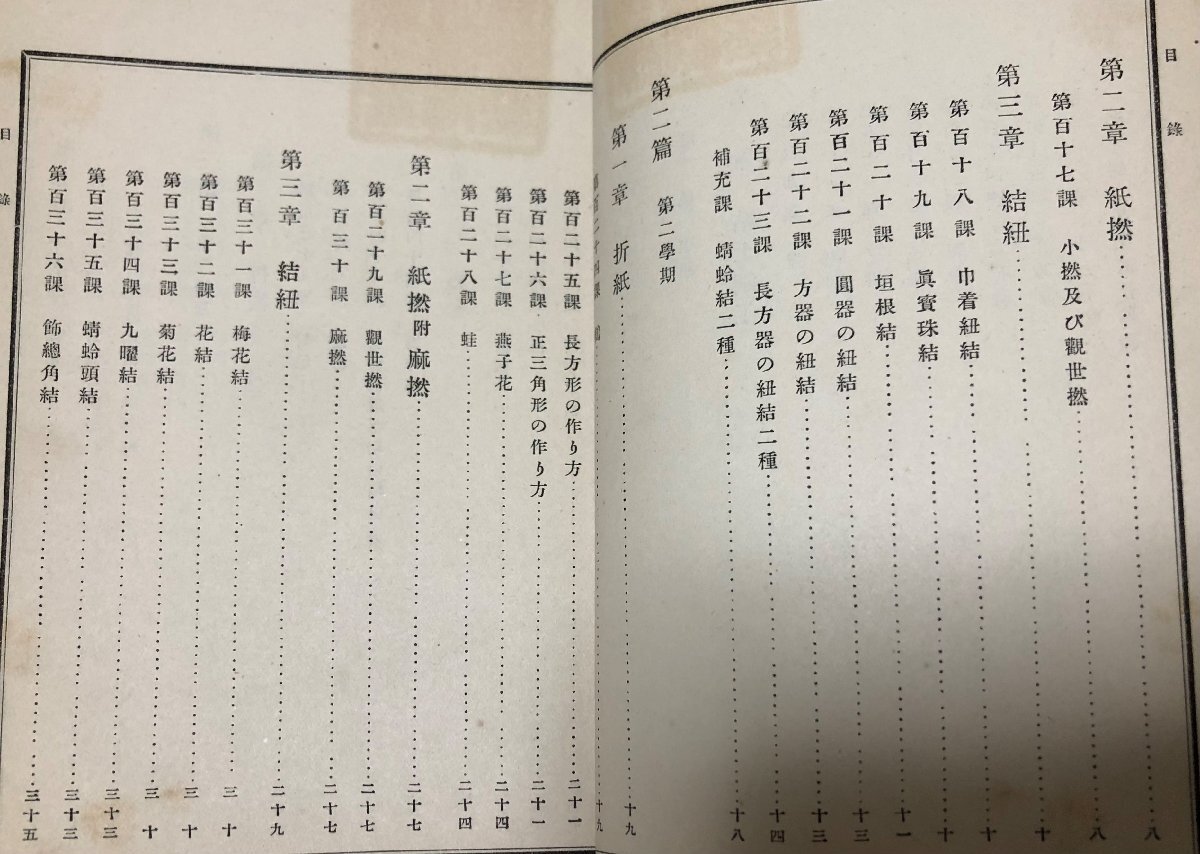 目錄
第二章 紙撚……八
第百十七課 小撚及び觀世撚……八
第三章 結紐……十
第百十八課 巾着紐結……十
第百十九課 眞寳珠結……十
第百二十課 垣根結……十一
第百二十一課 圓器の紐結……十三
第百二十二課 方器の紐結……十三
第百二十三課 長方器の紐結二種……十四
補充課 蜻蛉結二種……十八
第二篇 第二學期
第一章 折紙……十九
……十九
第百二十五課 長方形の作り方……二十一
第百二十六課 正三角形の作り方……二十一
第百二十七課 燕子花……二十四
第百二十八課 蛙……二十四
第二章 紙撚附麻撚……二十七
第百二十九課 觀世撚……二十七
第百三十課 麻撚……二十七
第三章 結紐……二十九
第百三十一課 梅花結……三十
第百三十二課 花結……三十
第百三十三課 菊花結……三十
第百三十四課 九曜結……三十三
第百三十五課 蜻蛉頭結……三十三
第百三十六課 飾總角結……三十五
目錄